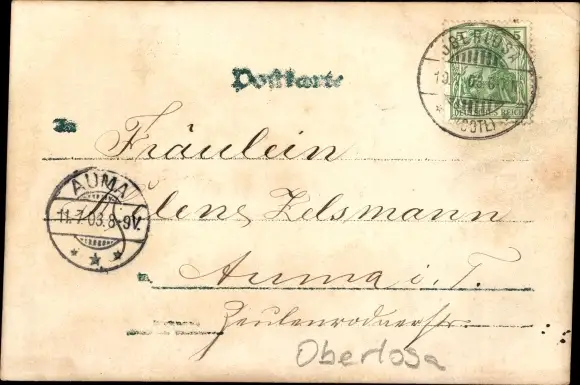 OBERLOSA
5
10.7.03.
(VOGTL)
DEUTSCHES REICH
Postkarte
An
Fräulein
AUMA
11.7.03.8-9V.
Helene Zelsmann
in
Auma i. T.
Zeulenrodaerstr.
Oberlosa